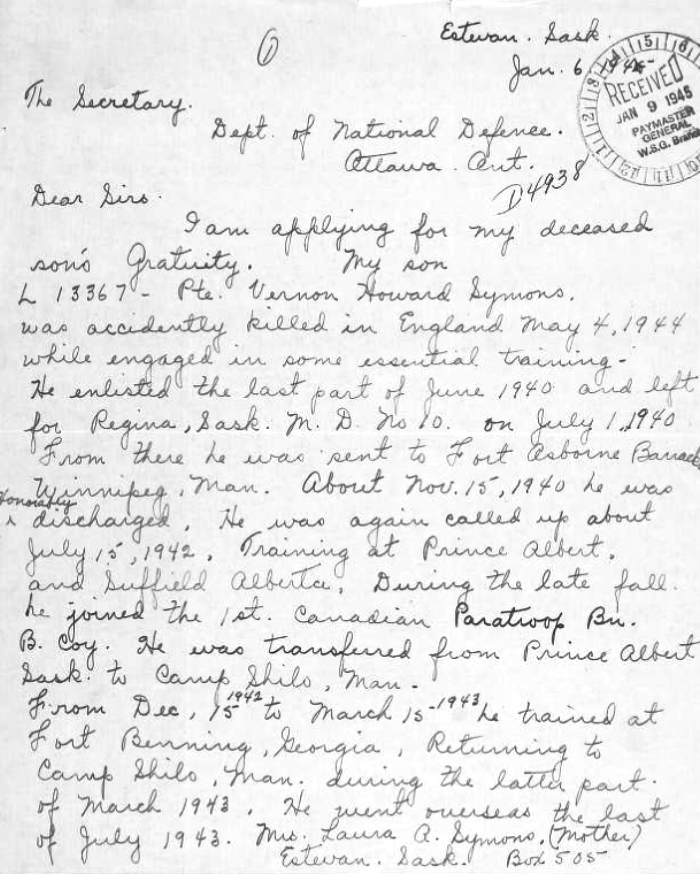 Estevan. Sask.
Jan. 6, 1945
RECEIVED
JAN 9 1945
PAYMASTER
GENERAL
W.S.G. Branch
The Secretary.
Dept. of National Defence.
Ottawa. Ont.
D4938
Dear Sirs.
I am applying for my deceased
son's Gratuity. My son
L 13367 - Pte. Vernon Howard Symons.
was accidently killed in England May 4, 1944
while engaged in some essential training -
He enlisted the last part of June 1940 and left
for Regina, Sask. M. D. No 10. on July 1, 1940
From there he was sent to Fort Osborne Barrack
Winnipeg, Man. About Nov. 15, 1940 he was
Honorably
discharged. He was again called up about
July 15, 1942. Training at Prince Albert.
and Suffield Alberta. During the late fall.
he joined the 1st. Canadian Paratroop Bn.
B. Coy. He was transferred from Prince Albert
Sask. to Camp Shilo, Man -
From Dec, 15 1942 to March 15 - 1943 he trained at
Fort Benning, Georgia, Returning to
Camp Shilo, Man. during the latter part.
of March 1943. He went overseas the last
of July 1943. Mrs. Laura A. Symons. (Mother)
Estevan. Sask. Box 505